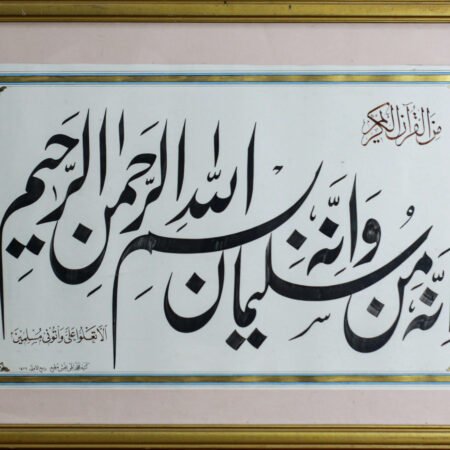 من القرآن الكريم
إنه من سليمان وإنه بسم الله الرحمن الرحيم
ألا تعلوا علي وأتوني مسلمين